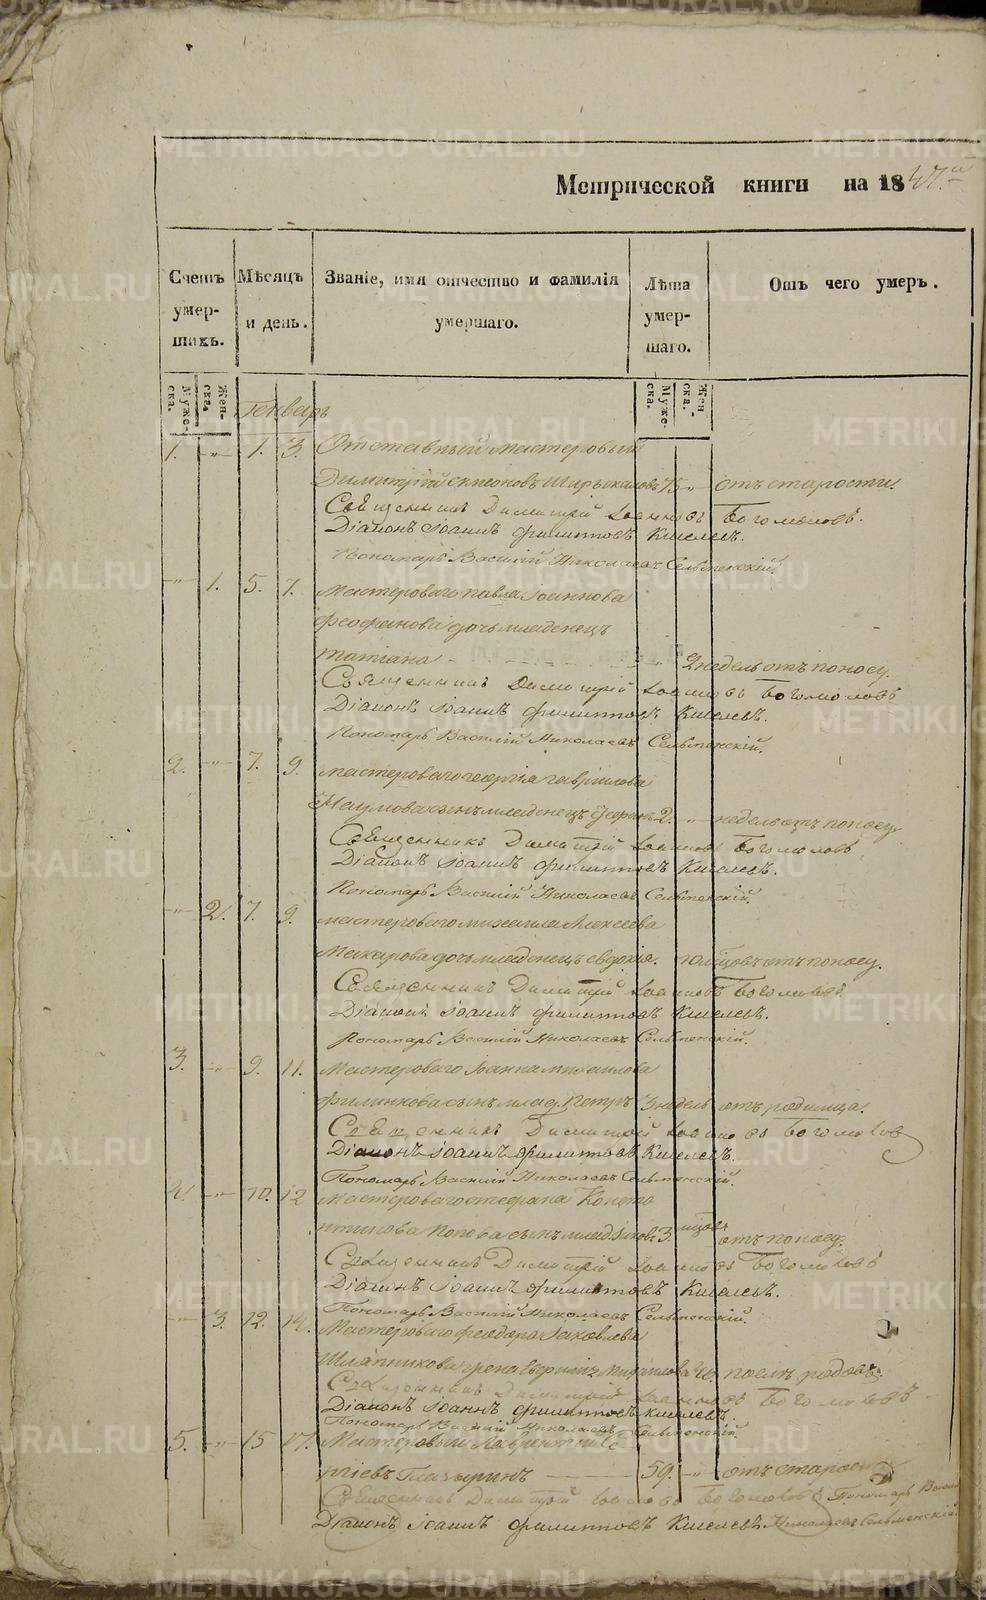 METRIKI.GASO-URAL.RU
Метрической книги на 1847.го
Счетъ умер-шихъ.
Мѣсяцъ и день.
Званіе, имя отчество и фамилія умершаго.
Лѣта умер-шаго.
Отъ чего умеръ.
Муже-ска. Жен-ска.
Муже-ска. Жен-ска.
Генварь
1. -"- 1. 3. Отставный мастеровый
Димитрій 75 -"- отъ старости.
Священникъ Димитрій Іоанновъ Богомоловъ.
Діаконъ Іоаннъ Филипповъ Киселевъ.
Пономарь Василій Николаевъ Сельменскій.
-"- 1. 5. 7. Мастероваго Павла Іоаннова
Феофанова дочь младенецъ
Татіана - - - " 2 недель отъ поносу.
Священникъ Димитрій Іоанновъ Богомоловъ
Діаконъ Іоаннъ Филипповъ Киселевъ.
Пономарь Василій Николаевъ Сельменскій.
2. -"- 7. 9. Мастероваго Георгія Гавріилова
Наумова сынъ младенецъ 2. -"- недель отъ поносу
Священникъ Димитрій Іоанновъ Богомоловъ
Діаконъ Іоаннъ Филипповъ Киселевъ.
Пономарь Василій Николаевъ Сельменскій.
-"- 2. 7. 9. Мастероваго Михаила Алексеева
Макарова дочь младенецъ Евдокія. отъ поносу.
Священникъ Димитрій Іоанновъ Богомоловъ
Діаконъ Іоаннъ Филипповъ Киселевъ.
Пономарь Василій Николаевъ Сельменскій.
3. -"- 9. 11. Мастероваго Іоанна Михаилова
Филинкова сынъ млад. Петръ 3 недель отъ родимца.
Священникъ Димитрій Іоанновъ Богомоловъ
Діаконъ Іоаннъ Филипповъ Киселевъ.
Пономарь Василій Николаевъ Сельменскій.
4. -"- 10. 12 Мастероваго Стефана Конста
нтинова Попова сынъ млад. Іаковъ 3. отъ поносу.
Священникъ Димитрій Іоанновъ Богомоловъ
Діаконъ Іоаннъ Филипповъ Киселевъ.
Пономарь Василій Николаевъ Сельменскій.
-"- 3. 12. 14. Мастероваго Феодора Іаковлева
Шляпникова жена Михаилова послѣ родовъ.
Священникъ Димитрій Іоанновъ Богомоловъ
Діаконъ Іоаннъ Филипповъ Киселевъ.
Пономарь Василій Николаевъ Сельменскій
5. -"- 15 17. Мастеровый Лаврентій
Глазыринъ 59. -"- отъ старости
Священникъ Димитрій Іоанновъ Богомоловъ Пономарь Василій
Діаконъ Іоаннъ Филипповъ Киселевъ Николаевъ Сельменскій